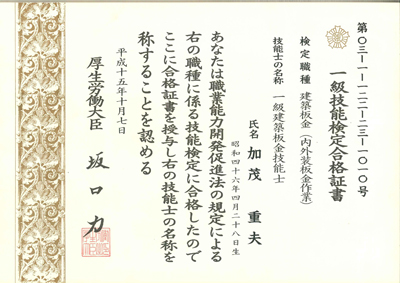 第〇三-一-一二二-二三-一〇一〇号
一級技能検定合格証書
検定職種 建築板金(内外装板金作業)
技能士の名称 一級建築板金技能士
氏名 加茂重夫
昭和四十六年四月二十八日生
あなたは職業能力開発促進法の規定による
右の職種に係る技能検定に合格したので
ここに合格証書を授与し右の技能士の名称を
称することを認める
平成十五年十月七日
厚生労働大臣 坂口力